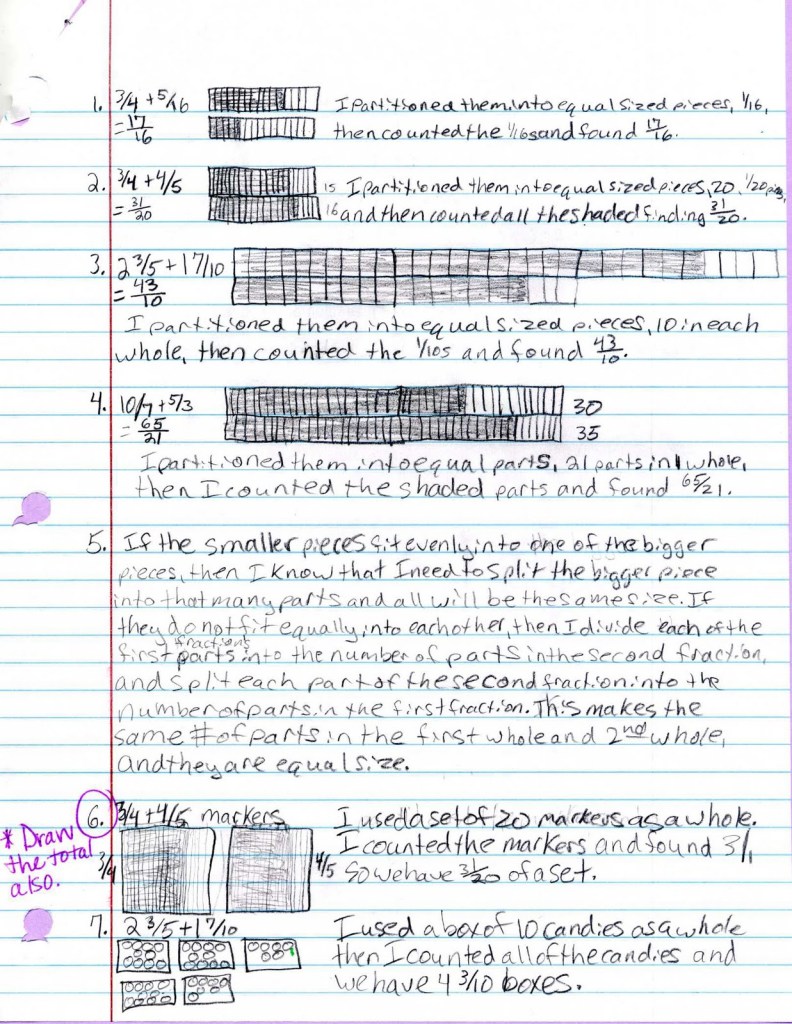 1. 3/4 + 5/16 I partitioned them into equal sized pieces, 1/16,
= 17/16 then counted the 1/16s and found 17/16.
2. 3/4 + 4/5 15 I partitioned them into equal sized pieces, 20, 1/20
= 31/20 16 and then counted all the shaded finding 31/20.
3. 2 3/5 + 17/10
= 43/10
I partitioned them into equal sized pieces, 10 in each
whole, then counted the 1/10s and found 43/10.
4. 10/7 + 5/3 30
= 65/21 35
I partitioned them into equal parts, 21 parts in 1 whole,
then I counted the shaded parts and found 65/21.
5. If the smaller pieces fit evenly into one of the bigger
pieces, then I know that I need to split the bigger piece
into that many parts and all will be the same size. If
they do not fit equally into each other, then I divide each of the
first fractions parts into the number of parts in the second fraction,
and split each part of the second fraction into the
number of parts in the first fraction. This makes the
same # of parts in the first whole and 2nd whole,
and they are equal size.
6. 3/4 + 4/5 markers I used a set of 20 markers as a whole.
* Draw the total also.
3/4 4/5 I counted the markers and found 31,
So we have 31/20 of a set.
7. 2 3/5 + 1 7/10 I used a box of 10 candies as a whole
then I counted all of the candies and
we have 4 3/10 boxes.